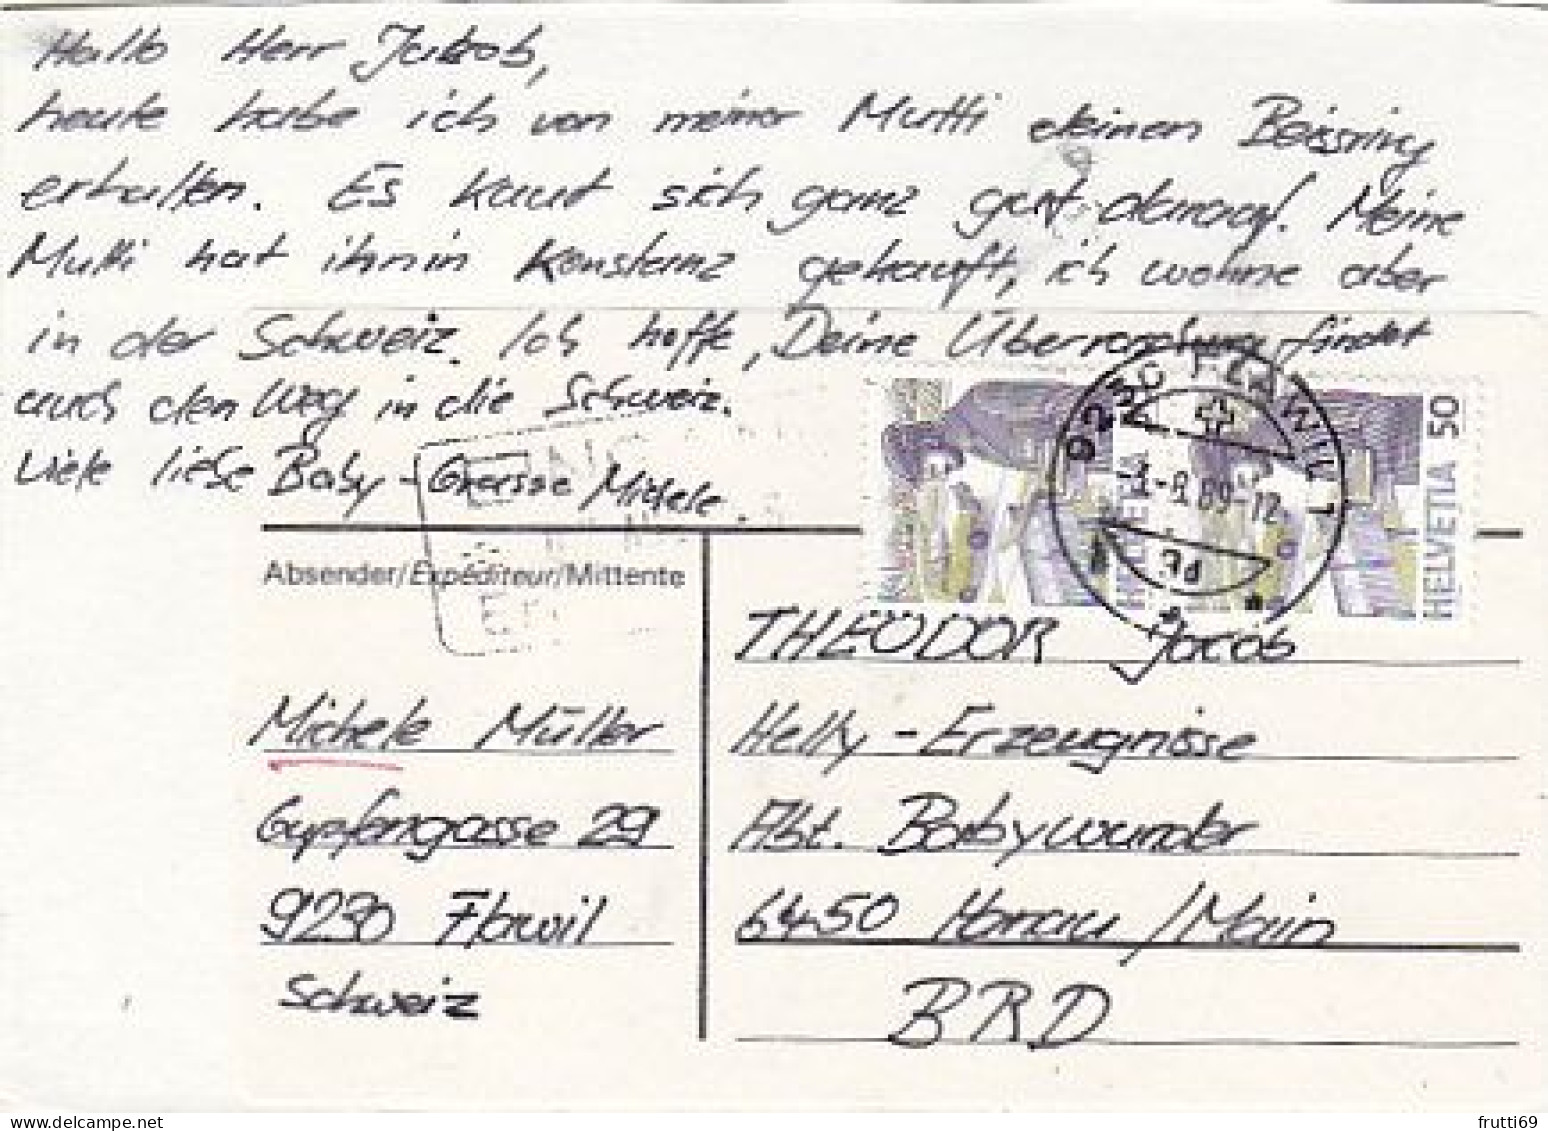 Hallo Herr Jakob,
heute habe ich von meiner Mutti deinen Beissring
erhalten. Es kaut sich ganz gut darauf. Meine
Mutti hat ihn in Konstanz gekauft, ich wohne aber
in der Schweiz. Ich hoffe, Deine Überraschung findet
auch den Weg in die Schweiz.
Viele liebe Baby-Grüsse Michele.
9230 FLAWIL 1
-9.89-12
HELVETIA 50
HELVETIA
Absender/Expéditeur/Mittente
THEODOR Jacob
Michele Müller
Helly-Erzeugnisse
Gupfengasse 29
Abt. Babywunder
9230 Flawil
6450 Hanau/Main
Schweiz
BRD
frutti69